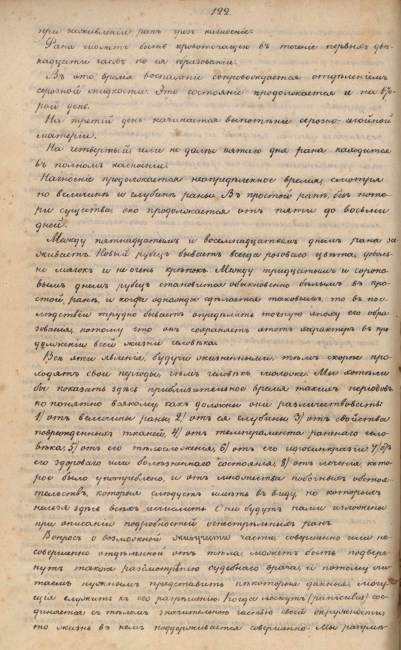 122.
при заживленіи ранъ чрезъ нагноеніе.
Рана можетъ быть кровоточащею въ теченіе первыхъ двѣ-
надцати часовъ по ея образованіи.
Въ это время воспаленіе сопровождается отдѣленіемъ
серозной жидкости. Это состояніе продолжается и на вто-
рой день.
На третій день начинается выпотѣніе серозно-гнойной
матеріи.
На четвертый или не далѣе пятаго дня рана находится
въ полномъ нагноеніи.
Нагноеніе продолжается неопредѣленное время, смотря
по величинѣ и глубинѣ раны. Въ простой ранѣ, безъ поте-
ри существа, оно продолжается отъ пяти до восьми
дней.
Между пятнадцатымъ и восемнадцатымъ днемъ рана за-
живаетъ. Новый рубецъ бываетъ всегда розоваго цвѣта, доволь-
но мягокъ и не очень крѣпокъ. Между тридцатымъ и сороко-
вымъ днемъ рубецъ становится обыкновенно бѣлымъ въ про-
стой ранѣ, и когда однажды сдѣлается таковымъ, то въ по-
слѣдствіи трудно бываетъ опредѣлить точную эпоху его обра-
зованія, потому что онъ сохраняетъ этотъ характеръ въ про-
долженіи всей жизни человѣка.
Всѣ эти явленія, будучи жизненными, тѣмъ скорѣе про-
ходятъ свои періоды, чѣмъ человѣкъ моложе. Мы хотѣли
бы показать здѣсь приблизительное время такихъ періодовъ,
но понятно всякому, какъ должны они различествовать:
1) отъ величины раны, 2) отъ ея глубины, 3) отъ свойства
поврежденныхъ тканей, 4) отъ темперамента раненаго чело-
вѣка, 5) отъ его тѣлосложенія, 6) отъ его идіосинкразіи, 7) отъ
его здороваго или болѣзненнаго состоянія, 8) отъ леченія, кото-
рое было употреблено, и отъ множества побочныхъ обстоя-
тельствъ, которыя слѣдуетъ имѣть въ виду, но которыхъ
нельзя здѣсь всѣхъ исчислить. Они будутъ нами изложены
при описаніи подробностей огнестрѣльныхъ ранъ.
Вопросъ о возможной части, совершенно или не-
совершенно отдѣленной отъ тѣла, можетъ быть подвер-
нутъ также разсмотрѣнію судебнаго врача, и потому счи-
таемъ нужнымъ представить нѣкоторыя данныя, могу-
щія служить къ его разрѣшенію. Когда лоскутъ сое-
диняется съ тѣломъ значительною частью своей окружности,
то жизнь въ немъ поддерживается совершенно. Мы